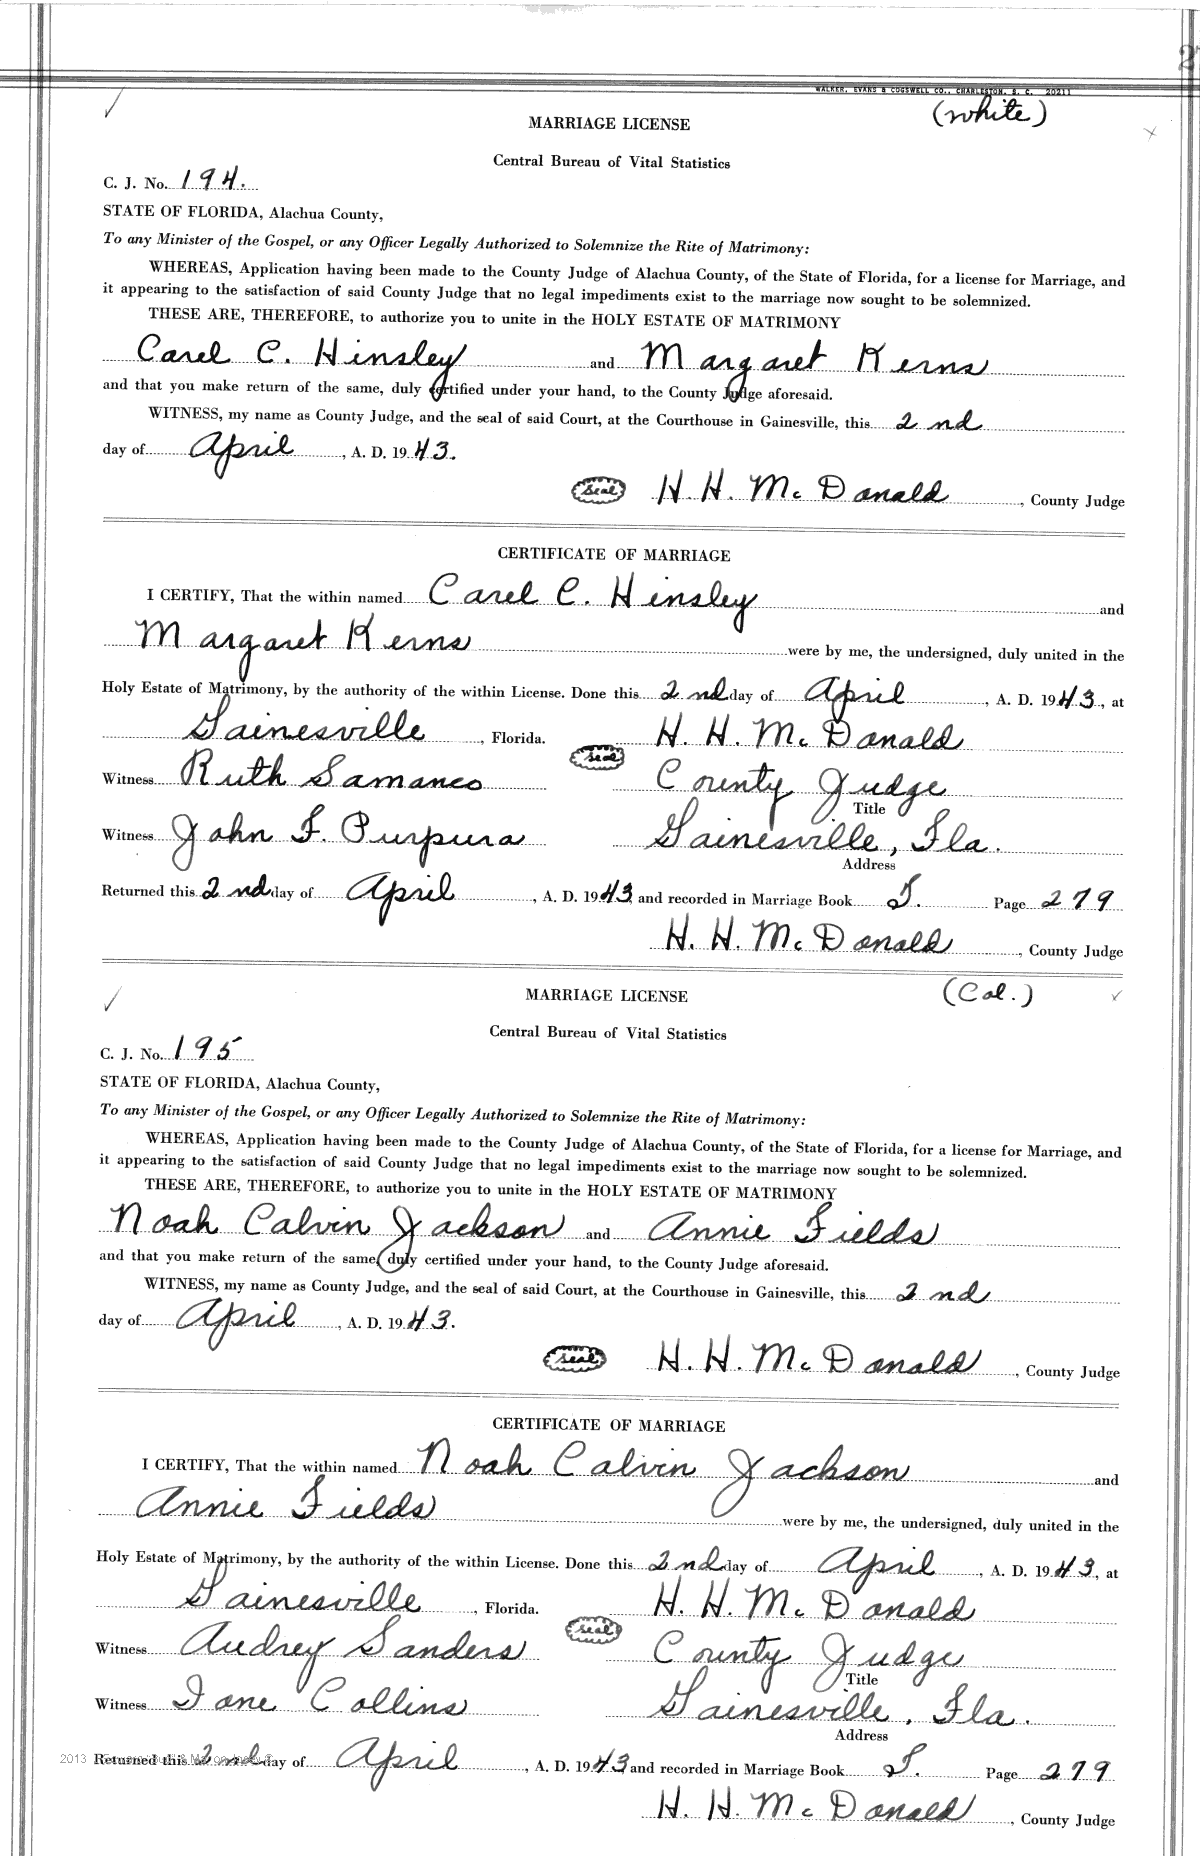 2
WALKER, EVANS & COGSWELL CO., CHARLESTON, S. C. 20211
(white)
MARRIAGE LICENSE
Central Bureau of Vital Statistics
C. J. No. 194.
STATE OF FLORIDA, Alachua County,
To any Minister of the Gospel, or any Officer Legally Authorized to Solemnize the Rite of Matrimony:
WHEREAS, Application having been made to the County Judge of Alachua County, of the State of Florida, for a license for Marriage, and
it appearing to the satisfaction of said County Judge that no legal impediments exist to the marriage now sought to be solemnized.
THESE ARE, THEREFORE, to authorize you to unite in the HOLY ESTATE OF MATRIMONY
Carel C. Hinsley and Margaret Kerns
and that you make return of the same, duly certified under your hand, to the County Judge aforesaid.
WITNESS, my name as County Judge, and the seal of said Court, at the Courthouse in Gainesville, this 2nd
day of April, A. D. 1943.
seal H. H. McDonald, County Judge
CERTIFICATE OF MARRIAGE
I CERTIFY, That the within named Carel C. Hinsley and
Margaret Kerns were by me, the undersigned, duly united in the
Holy Estate of Matrimony, by the authority of the within License. Done this 2nd day of April, A. D. 1943, at
Gainesville, Florida. seal H. H. McDonald
Witness Ruth Samanco County Judge
Title
Witness John F. Purpura Gainesville, Fla.
Address
Returned this 2nd day of April, A. D. 1943 and recorded in Marriage Book T. Page 279
H. H. McDonald, County Judge
MARRIAGE LICENSE (Col.)
Central Bureau of Vital Statistics
C. J. No. 195
STATE OF FLORIDA, Alachua County,
To any Minister of the Gospel, or any Officer Legally Authorized to Solemnize the Rite of Matrimony:
WHEREAS, Application having been made to the County Judge of Alachua County, of the State of Florida, for a license for Marriage, and
it appearing to the satisfaction of said County Judge that no legal impediments exist to the marriage now sought to be solemnized.
THESE ARE, THEREFORE, to authorize you to unite in the HOLY ESTATE OF MATRIMONY
Noah Calvin Jackson and Annie Fields
and that you make return of the same, duly certified under your hand, to the County Judge aforesaid.
WITNESS, my name as County Judge, and the seal of said Court, at the Courthouse in Gainesville, this 2nd
day of April, A. D. 1943.
seal H. H. McDonald, County Judge
CERTIFICATE OF MARRIAGE
I CERTIFY, That the within named Noah Calvin Jackson and
Annie Fields were by me, the undersigned, duly united in the
Holy Estate of Matrimony, by the authority of the within License. Done this 2nd day of April, A. D. 1943, at
Gainesville, Florida. seal H. H. McDonald
Witness Audrey Sanders County Judge
Title
Witness Ione Collins Gainesville, Fla.
Address
2013 Returned this 2nd day of April, A. D. 1943 and recorded in Marriage Book T. Page 279
H. H. McDonald, County Judge